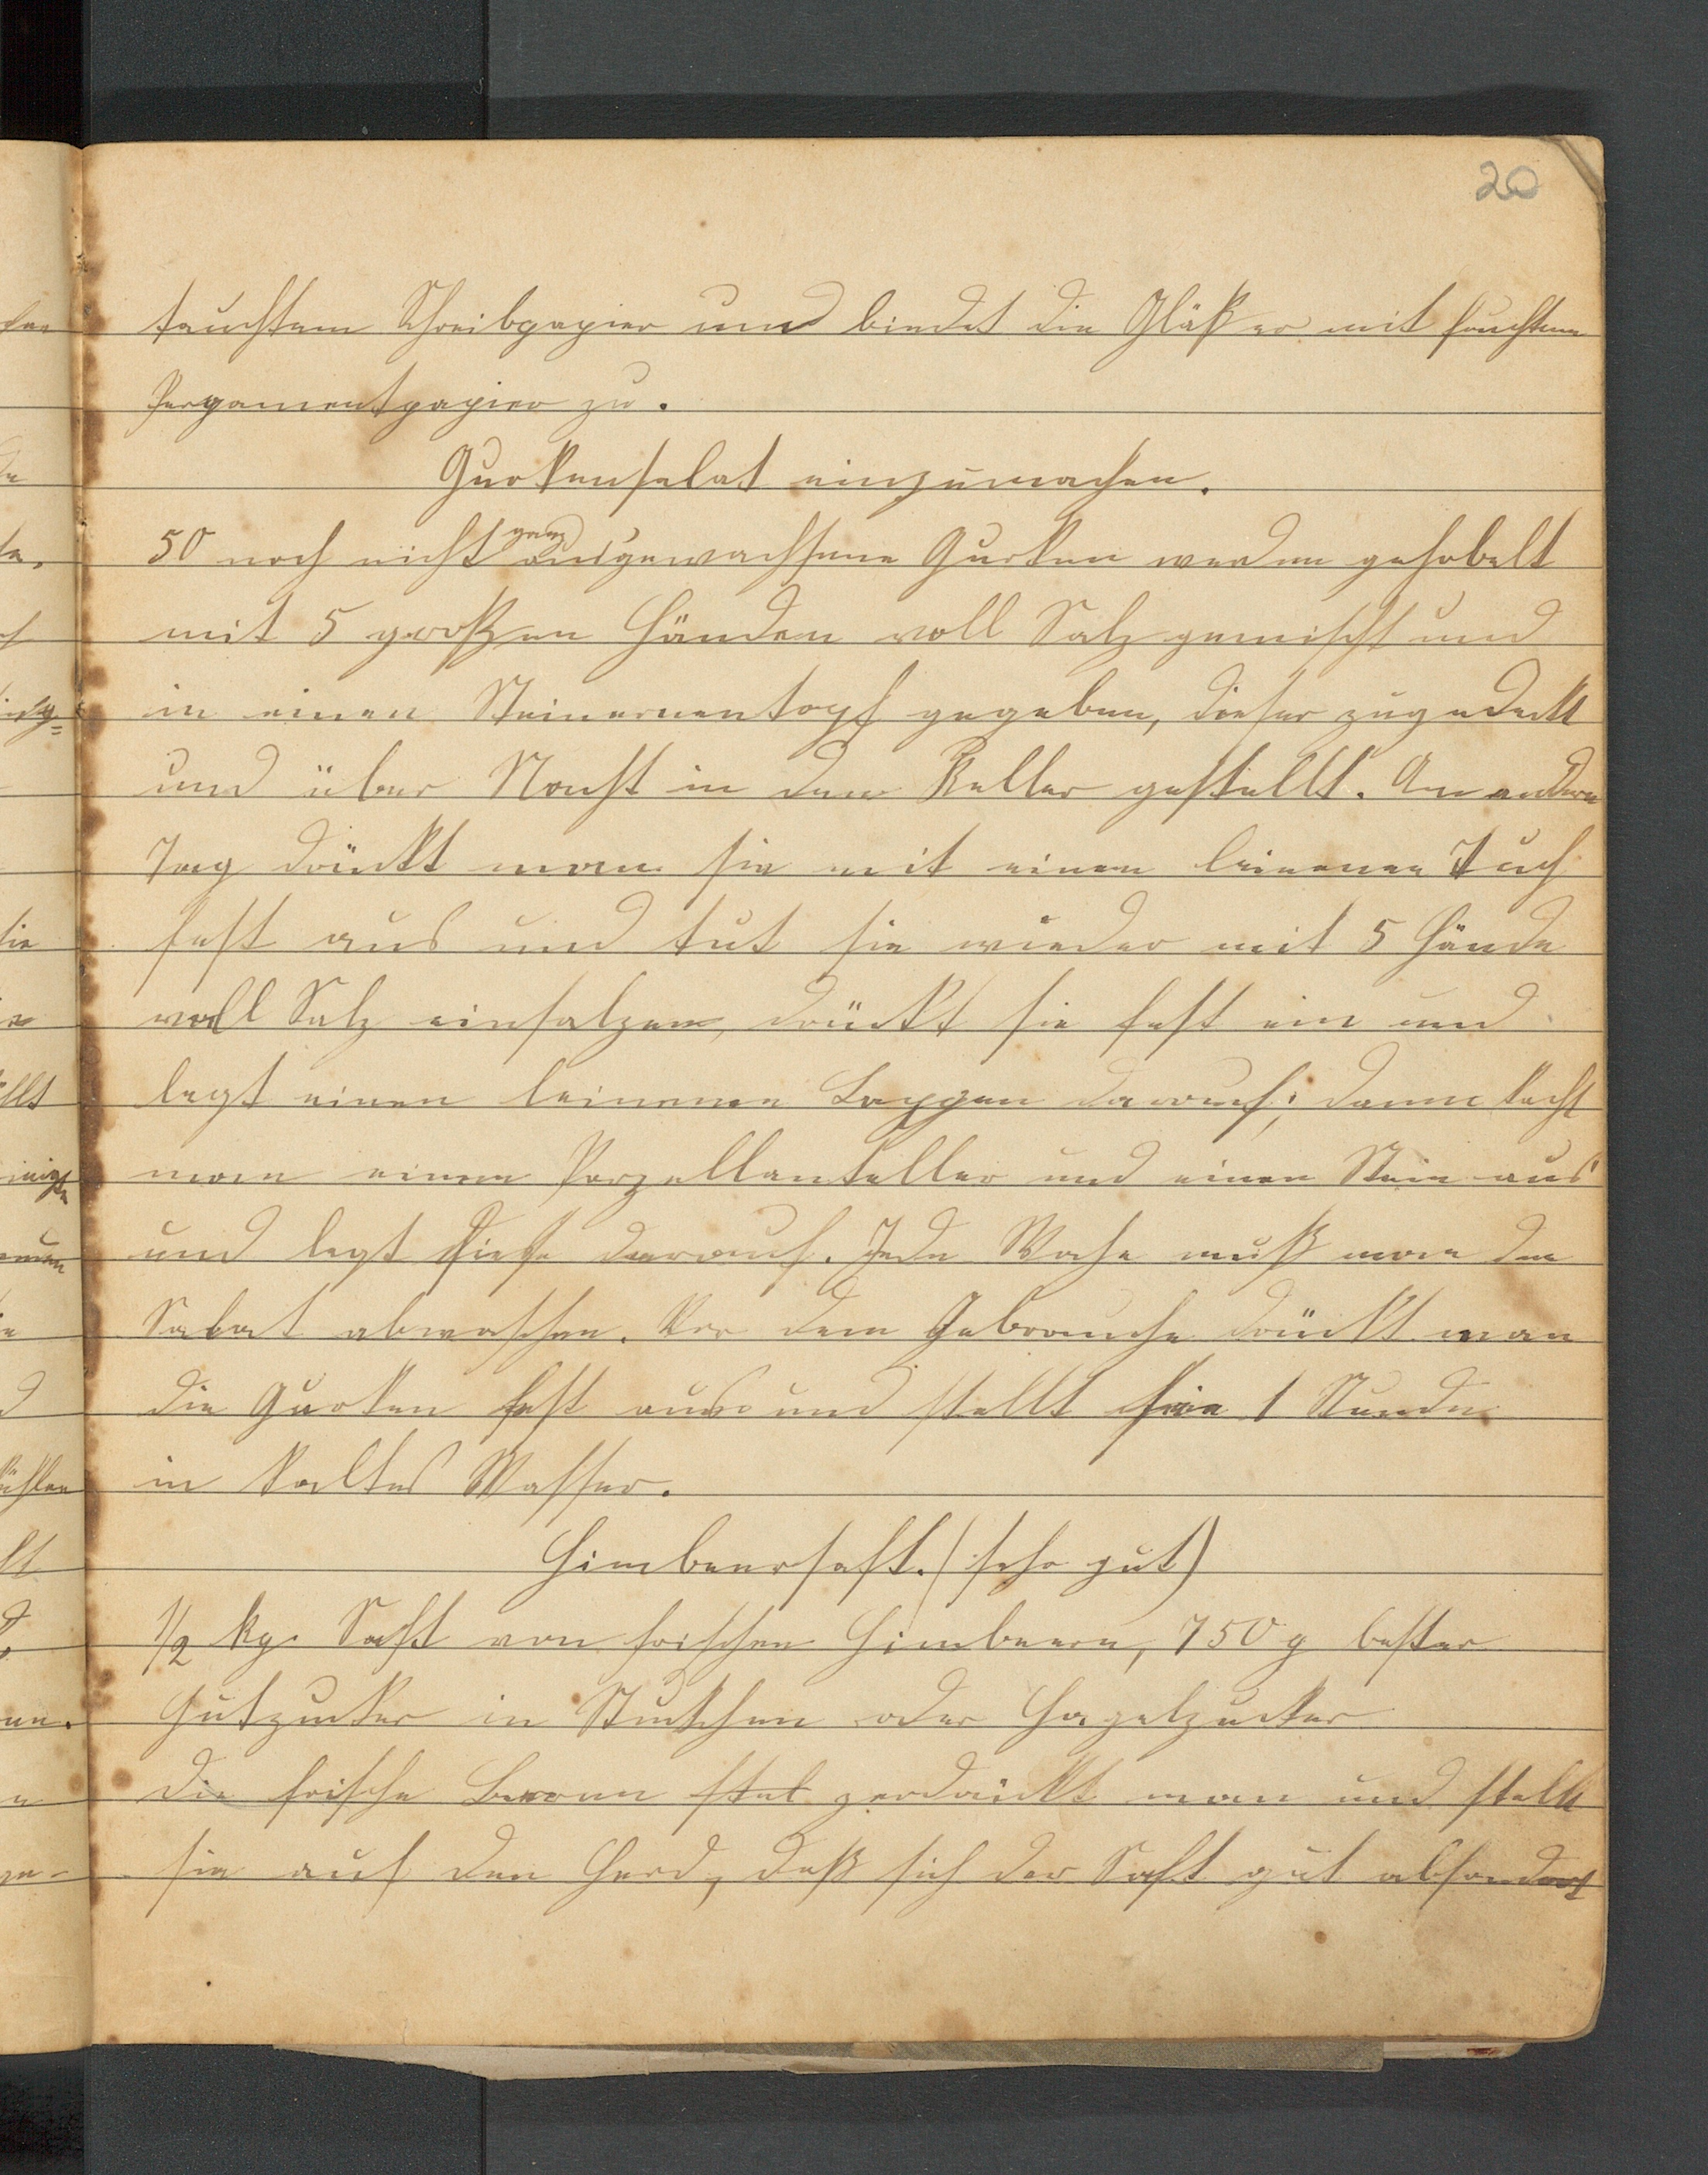 20
tauchtem Schreibpapier und bindet die Gläßer mit feuchtem
Pergamentpapier zu.
Gurkensalat einzumachen.
50 noch nicht ganz ausgewachsene Gurken werden gehobelt
mit 5 großen Händen voll Salz gemischt und
in einen Steinernentopf gegeben, dieser zugedeckt
und über Nacht in den Keller gestellt. Am andern
Tag drückt man sie mit einem leinenen Tuch
fest aus und tut sie wieder mit 5 Hände
voll Salz einsalzen, drückt sie fest ein und
legt einen leinenen Lappen darauf; dann kocht
man einen Porzellanteller und einen Stein aus
und legt diese darauf. Jede Woche muß man den
Salat abwaschen. Vor dem Gebrauche drückt man
die Gurken fest aus und stellt sie 1 Stunde
in kaltes Wasser.
Himbeersaft. (sehr gut)
1/2 kg. Saft von frischen Himbeern, 750 g bester
Hutzucker in Stückchen oder Hagelzucker
Die frische Beeren stel zerdrückt man und stellt
sie auf den Herd, daß sich der Saft gut absondert